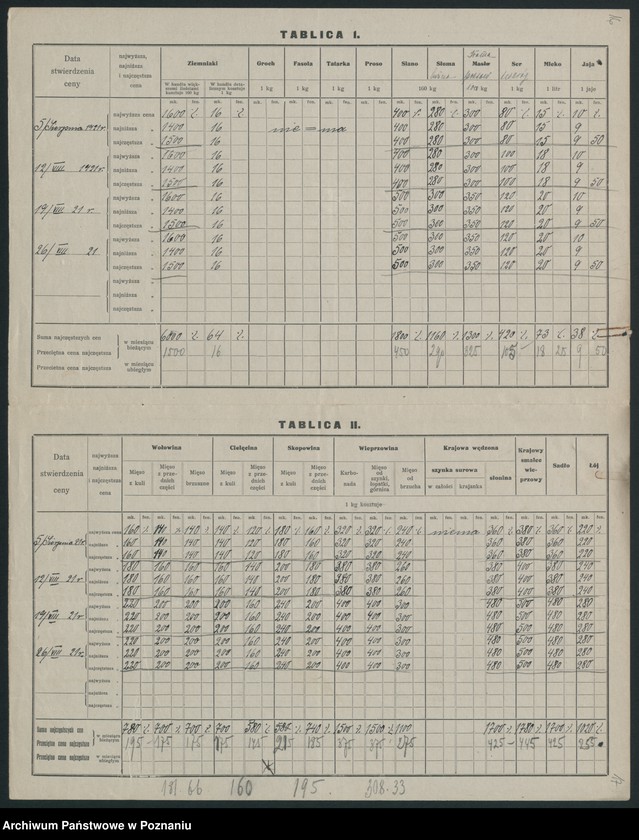 TABLICA I.
Data stwierdzenia ceny
najwyższa, najniższa i najczęstsza cena
Ziemniaki Groch Fasola Tatarka Proso Siano Słoma Masło Ser Mleko Jaja
1 kg 1 kg 1 kg 1 kg 100 kg 1 kg 1 litr 1 kopa
mk. fen. mk. fen. mk. fen. mk. fen. mk. fen. mk. fen. mk. fen. mk. fen. mk. fen. mk. fen. mk. fen. mk. fen.
najwyższa cena 1600 16 400 280 300 80 15 10
5/Sierpnia 1921r. najniższa „ 1400 16 nie=ma 400 280 300 80 15 9
najczęstsza „ 1500 16 400 280 300 80 15 9 50
najwyższa „ 1600 16 400 280 300 100 18 10
12/VIII 1921r. najniższa „ 1400 16 400 280 300 100 18 9
najczęstsza „ 1500 16 400 280 300 100 18 9 50
najwyższa „ 1600 16 500 300 350 120 20 10
19/VIII 21 r. najniższa „ 1400 16 500 300 350 120 20 9
najczęstsza „ 1500 16 500 300 350 120 20 9 50
najwyższa „ 1600 16 500 300 350 120 20 10
26/VIII 21 najniższa „ 1400 16 500 300 350 120 20 9
najczęstsza „ 1500 16 500 300 350 120 20 9 50
najwyższa „
najniższa „
najczęstsza „
Suma najczęstszych cen 6000 64 1800 1160 1300 420 73 38
Przeciętna cena najczęstsza w miesiącu bieżącym 1500 16 450 290 325 105 18 25 9 50
Przeciętna cena najczęstsza w miesiącu ubiegłym
TABLICA II.
Data stwierdzenia ceny
najwyższa najniższa i najczęstsza cena
Wołowina Cielęcina Skopowina Wieprzowina Krajowa wędzona Krajowy smalec wieprzowy Sadło Łój
szynka surowa słonina
Mięso z kuli Mięso z przednich części Mięso brzuszne Mięso z kuli Mięso z przednich części Mięso z kuli Mięso z przednich części Karbonada Mięso od szynki, łopatki, górnica Mięso od brzucha w całości krajanka
1 kg kosztuje
mk. fen. mk. fen. mk. fen. mk. fen. mk. fen. mk. fen. mk. fen. mk. fen. mk. fen. mk. fen. mk. fen. mk. fen. mk. fen. mk. fen. mk. fen. mk. fen.
najwyższa cena 160 140 140 140 120 180 160 320 320 240 niema 360 380 360 220
najniższa „ 160 140 140 140 120 180 160 320 320 240 360 380 360 220
najczęstsza „ 160 140 140 140 120 180 160 320 320 240 360 380 360 220
najwyższa „ 180 160 160 160 140 200 180 380 380 260 380 400 380 240
12/VIII 21r. najniższa „ 180 160 160 160 140 200 180 380 380 260 380 400 380 240
najczęstsza „ 180 160 160 160 140 200 180 380 380 260 380 400 380 240
najwyższa „ 220 200 200 200 160 240 200 400 400 300 480 500 480 280
19/VIII 21r. najniższa „ 220 200 200 200 160 240 200 400 400 300 480 500 480 280
najczęstsza „ 220 200 200 200 160 240 200 400 400 300 480 500 480 280
najwyższa „ 220 200 200 200 160 240 200 400 400 300 480 500 480 280
26/VIII 21r. najniższa „ 220 200 200 200 160 240 200 400 400 300 480 500 480 280
najczęstsza „ 220 200 200 200 160 240 200 400 400 300 480 500 480 280
najwyższa „
najniższa „
najczęstsza „
Suma najczęstszych cen 780 700 700 700 580 740 1500 1500 1100 1700 1780 1700 1020
Przeciętna cena najczęstsza w miesiącu bieżącym 195 175 175 175 145 185 375 375 275 425 445 425 255
Przeciętna cena najczęstsza w miesiącu ubiegłym
181 66 160 195. 308.33
Archiwum Państwowe w Poznaniu